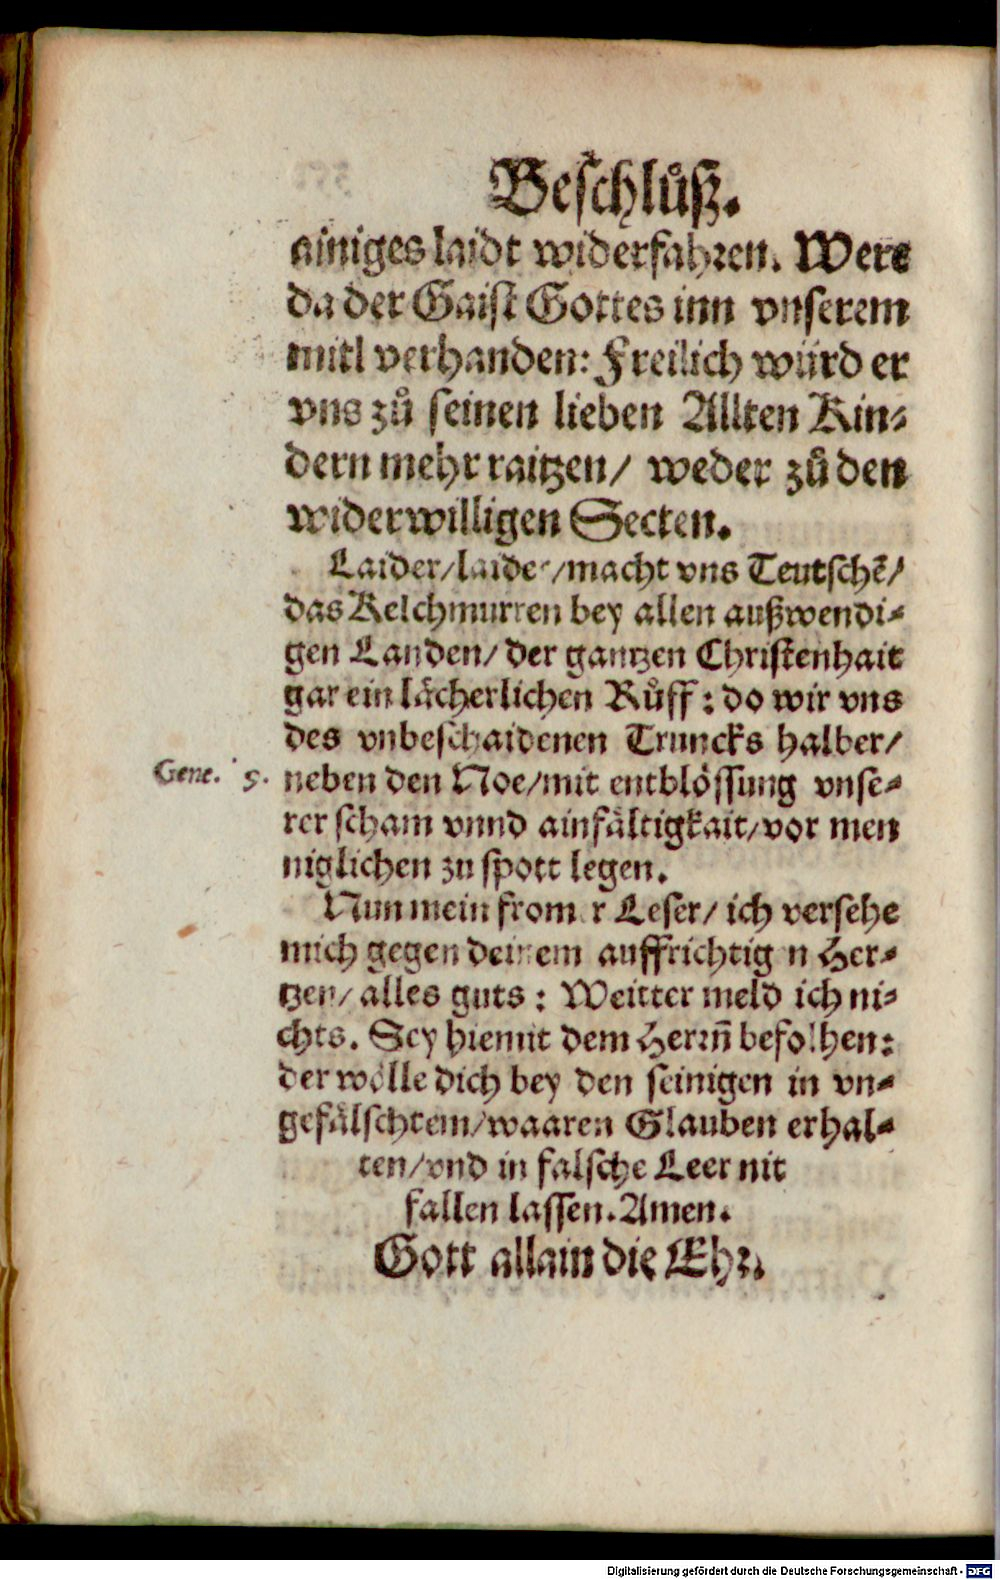 Beschlůß.
ainiges laidt widerfahren. Were
da der Gaist Gottes inn vnserem
mitl verhanden: Freilich würd er
vns zů seinen lieben Allten Kin-
dern mehr raitzen/ weder zů den
widerwilligen Secten.
Laider/laider/macht vns Teutschē/
das Kelchmurren bey allen außwendi-
gen Landen/ der gantzen Christenhait
gar ein lächerlichen Růff: do wir vns
des vnbeschaidenen Truncks halber/
Gene. 9. neben den Noe/mit entblössung vnse-
rer scham vnnd ainfältigkait/vor men
niglichen zu spott legen.
Nun mein fromer Leser/ ich versehe
mich gegen deinem auffrichtigen Her-
tzen/ alles guts: Weitter meld ich ni-
chts. Sey hiemit dem Herrn̄ befolhen:
der wölle dich bey den seinigen in vn-
gefälschtem/waaren Glauben erhal-
ten/vnd in falsche Leer nit
fallen lassen. Amen.
Gott allain die Ehr.
Digitalisierung gefördert durch die Deutsche Forschungsgemeinschaft - DFG